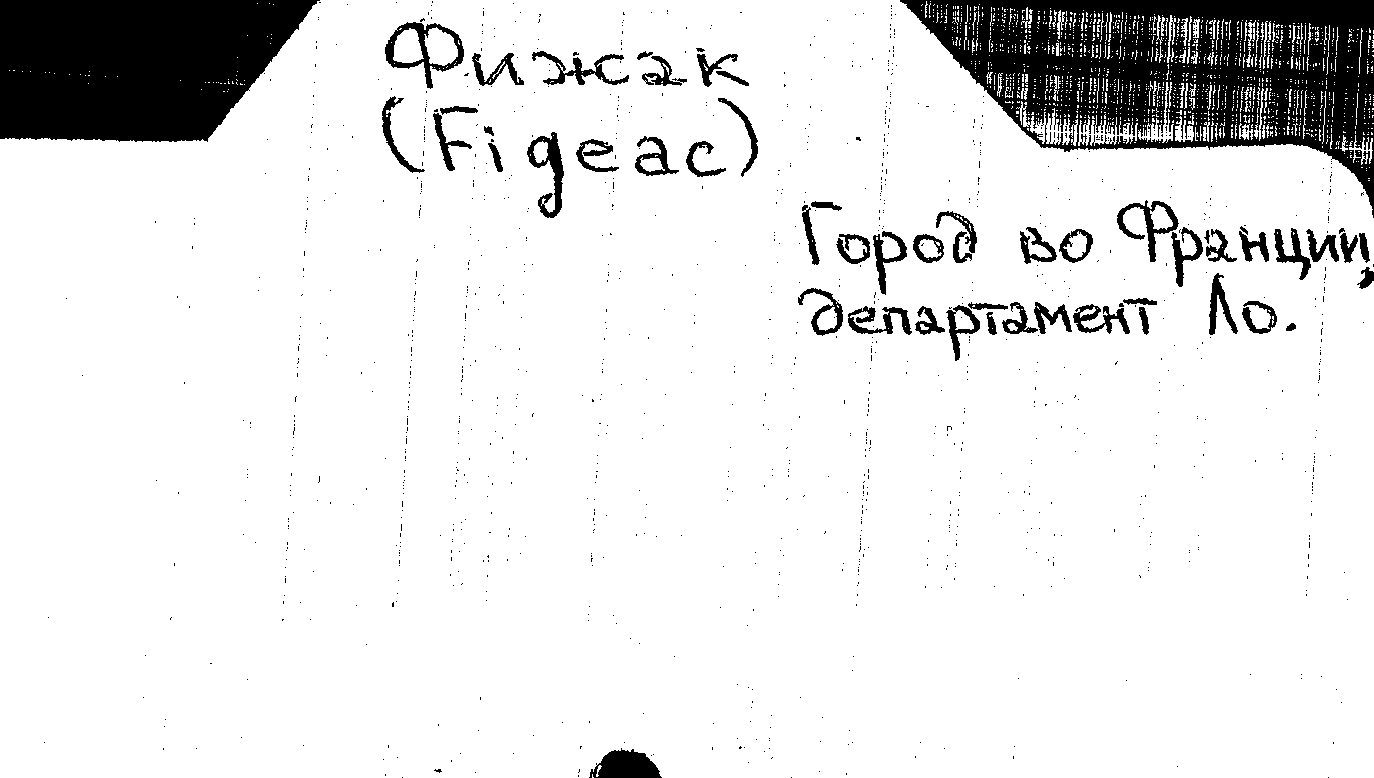 Фижак
(Figeac)
Город во Франции,
департамент Ло.